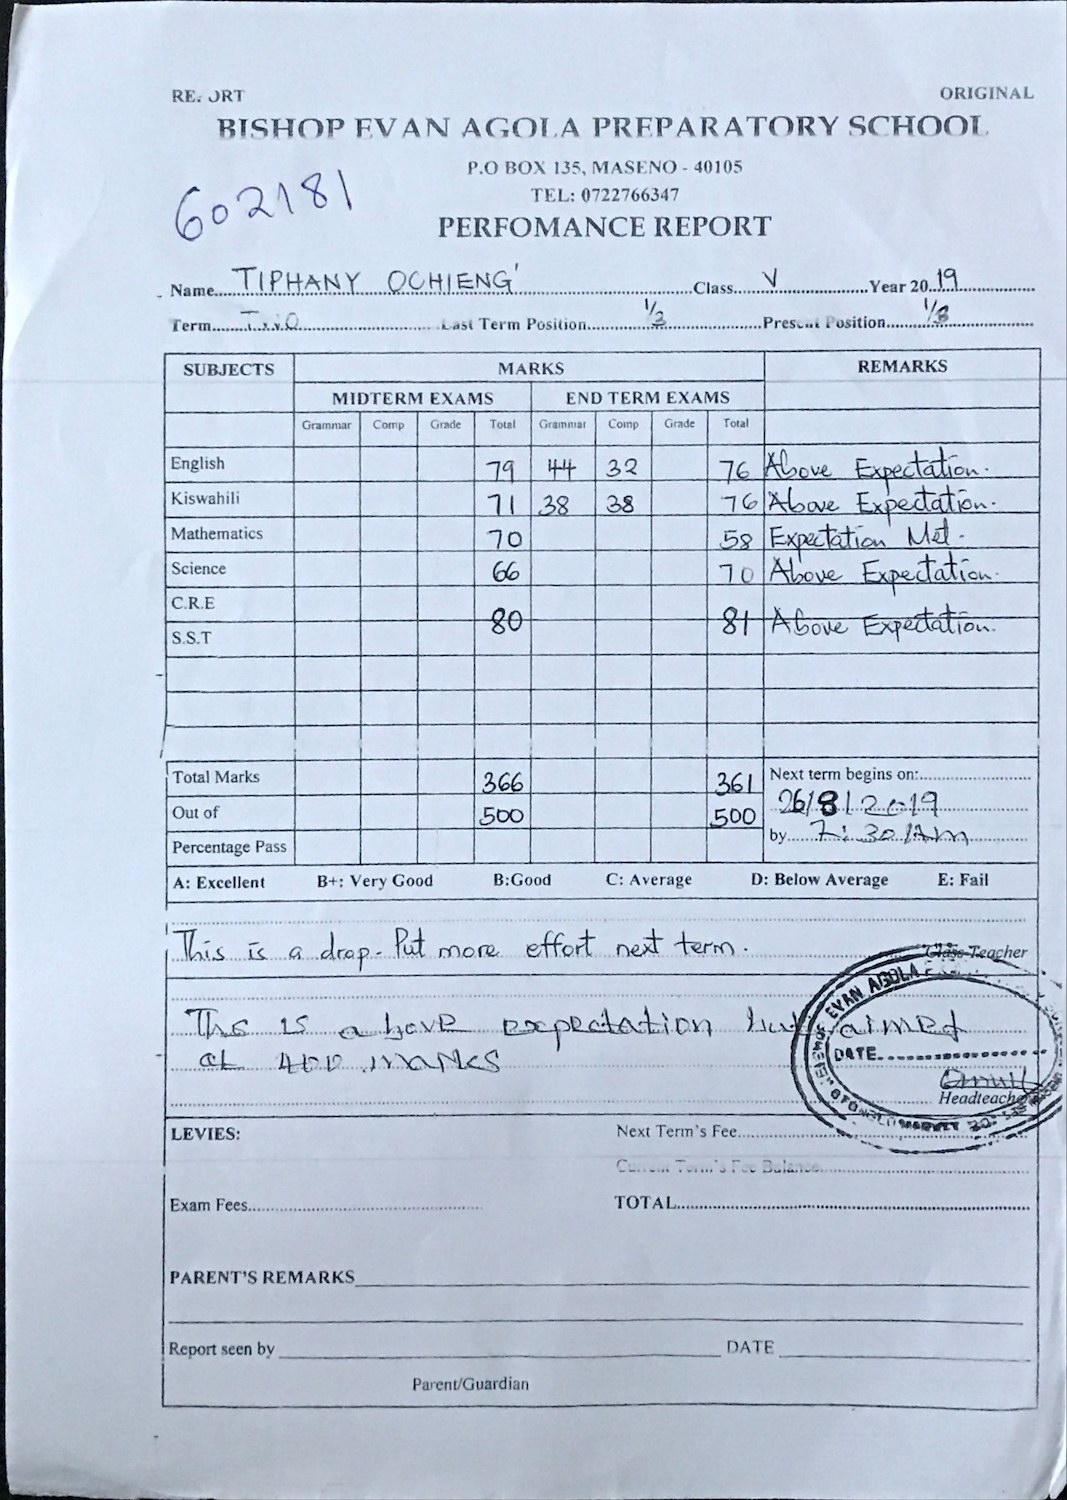 REPORT ORIGINAL
BISHOP EVAN AGOLA PREPARATORY SCHOOL
P.O BOX 135, MASENO - 40105
602181
TEL: 0722766347
PERFOMANCE REPORT
Name TIPHANY OCHIENG' Class V Year 2019
Term Two Last Term Position 1/3 Present Position 1/3
SUBJECTS MARKS REMARKS
MIDTERM EXAMS END TERM EXAMS
Grammar Comp Grade Total Grammar Comp Grade Total
English 79 44 32 76 Above Expectation.
Kiswahili 71 38 38 76 Above Expectation.
Mathematics 70 58 Expectation Met.
Science 66 70 Above Expectation.
C.R.E
80 81 Above Expectation.
S.S.T
Total Marks 366 361 Next term begins on:
Out of 500 500 26/8/2019
Percentage Pass by 7:30 Am
A: Excellent B+: Very Good B:Good C: Average D: Below Average E: Fail
This is a drop. Put more effort next term.
Class Teacher
This is above expectation but aimed
at 400 marks
EVAN AGOLA
DATE
Headteacher
MARKET
LEVIES: Next Term's Fee
Current Term's Fee Balance
Exam Fees TOTAL
PARENT'S REMARKS
Report seen by DATE
Parent/Guardian